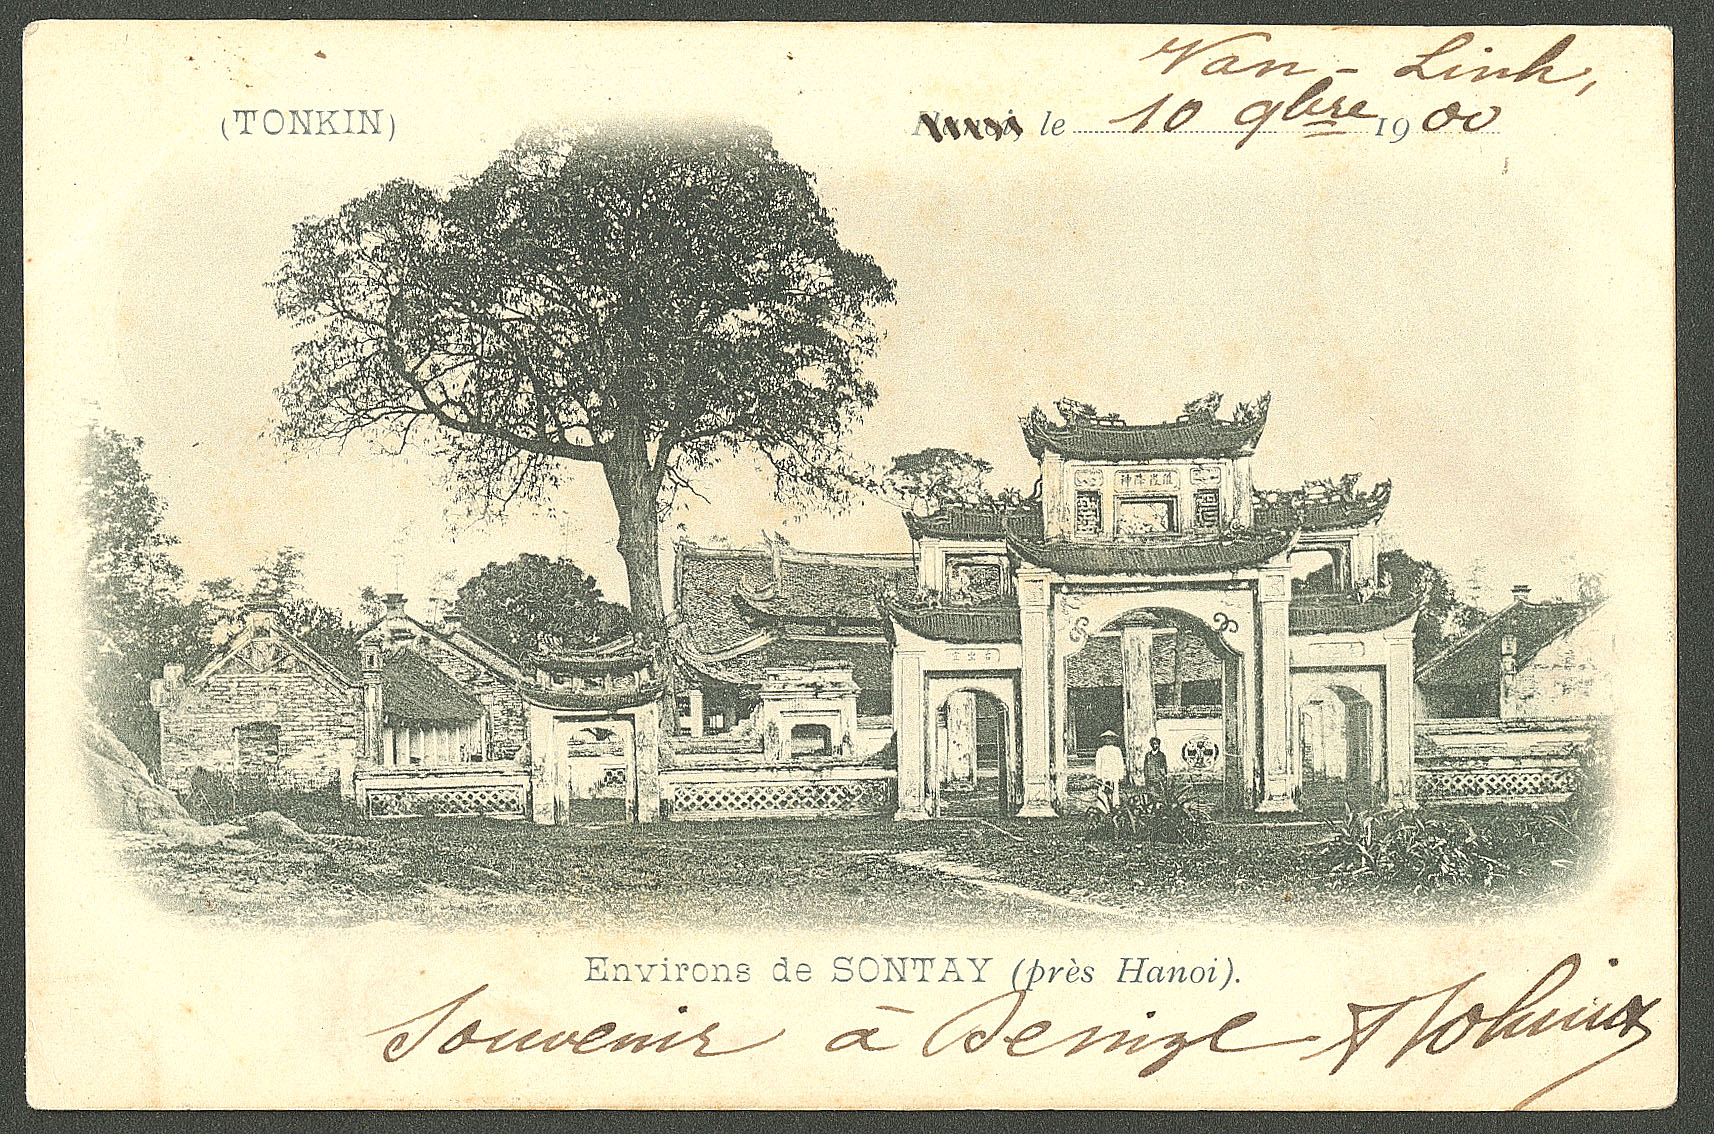 Van-Linh,
(TONKIN)
Hanoi, le 10 9bre 1900
Environs de SONTAY (près Hanoi).
Souvenir à Denize